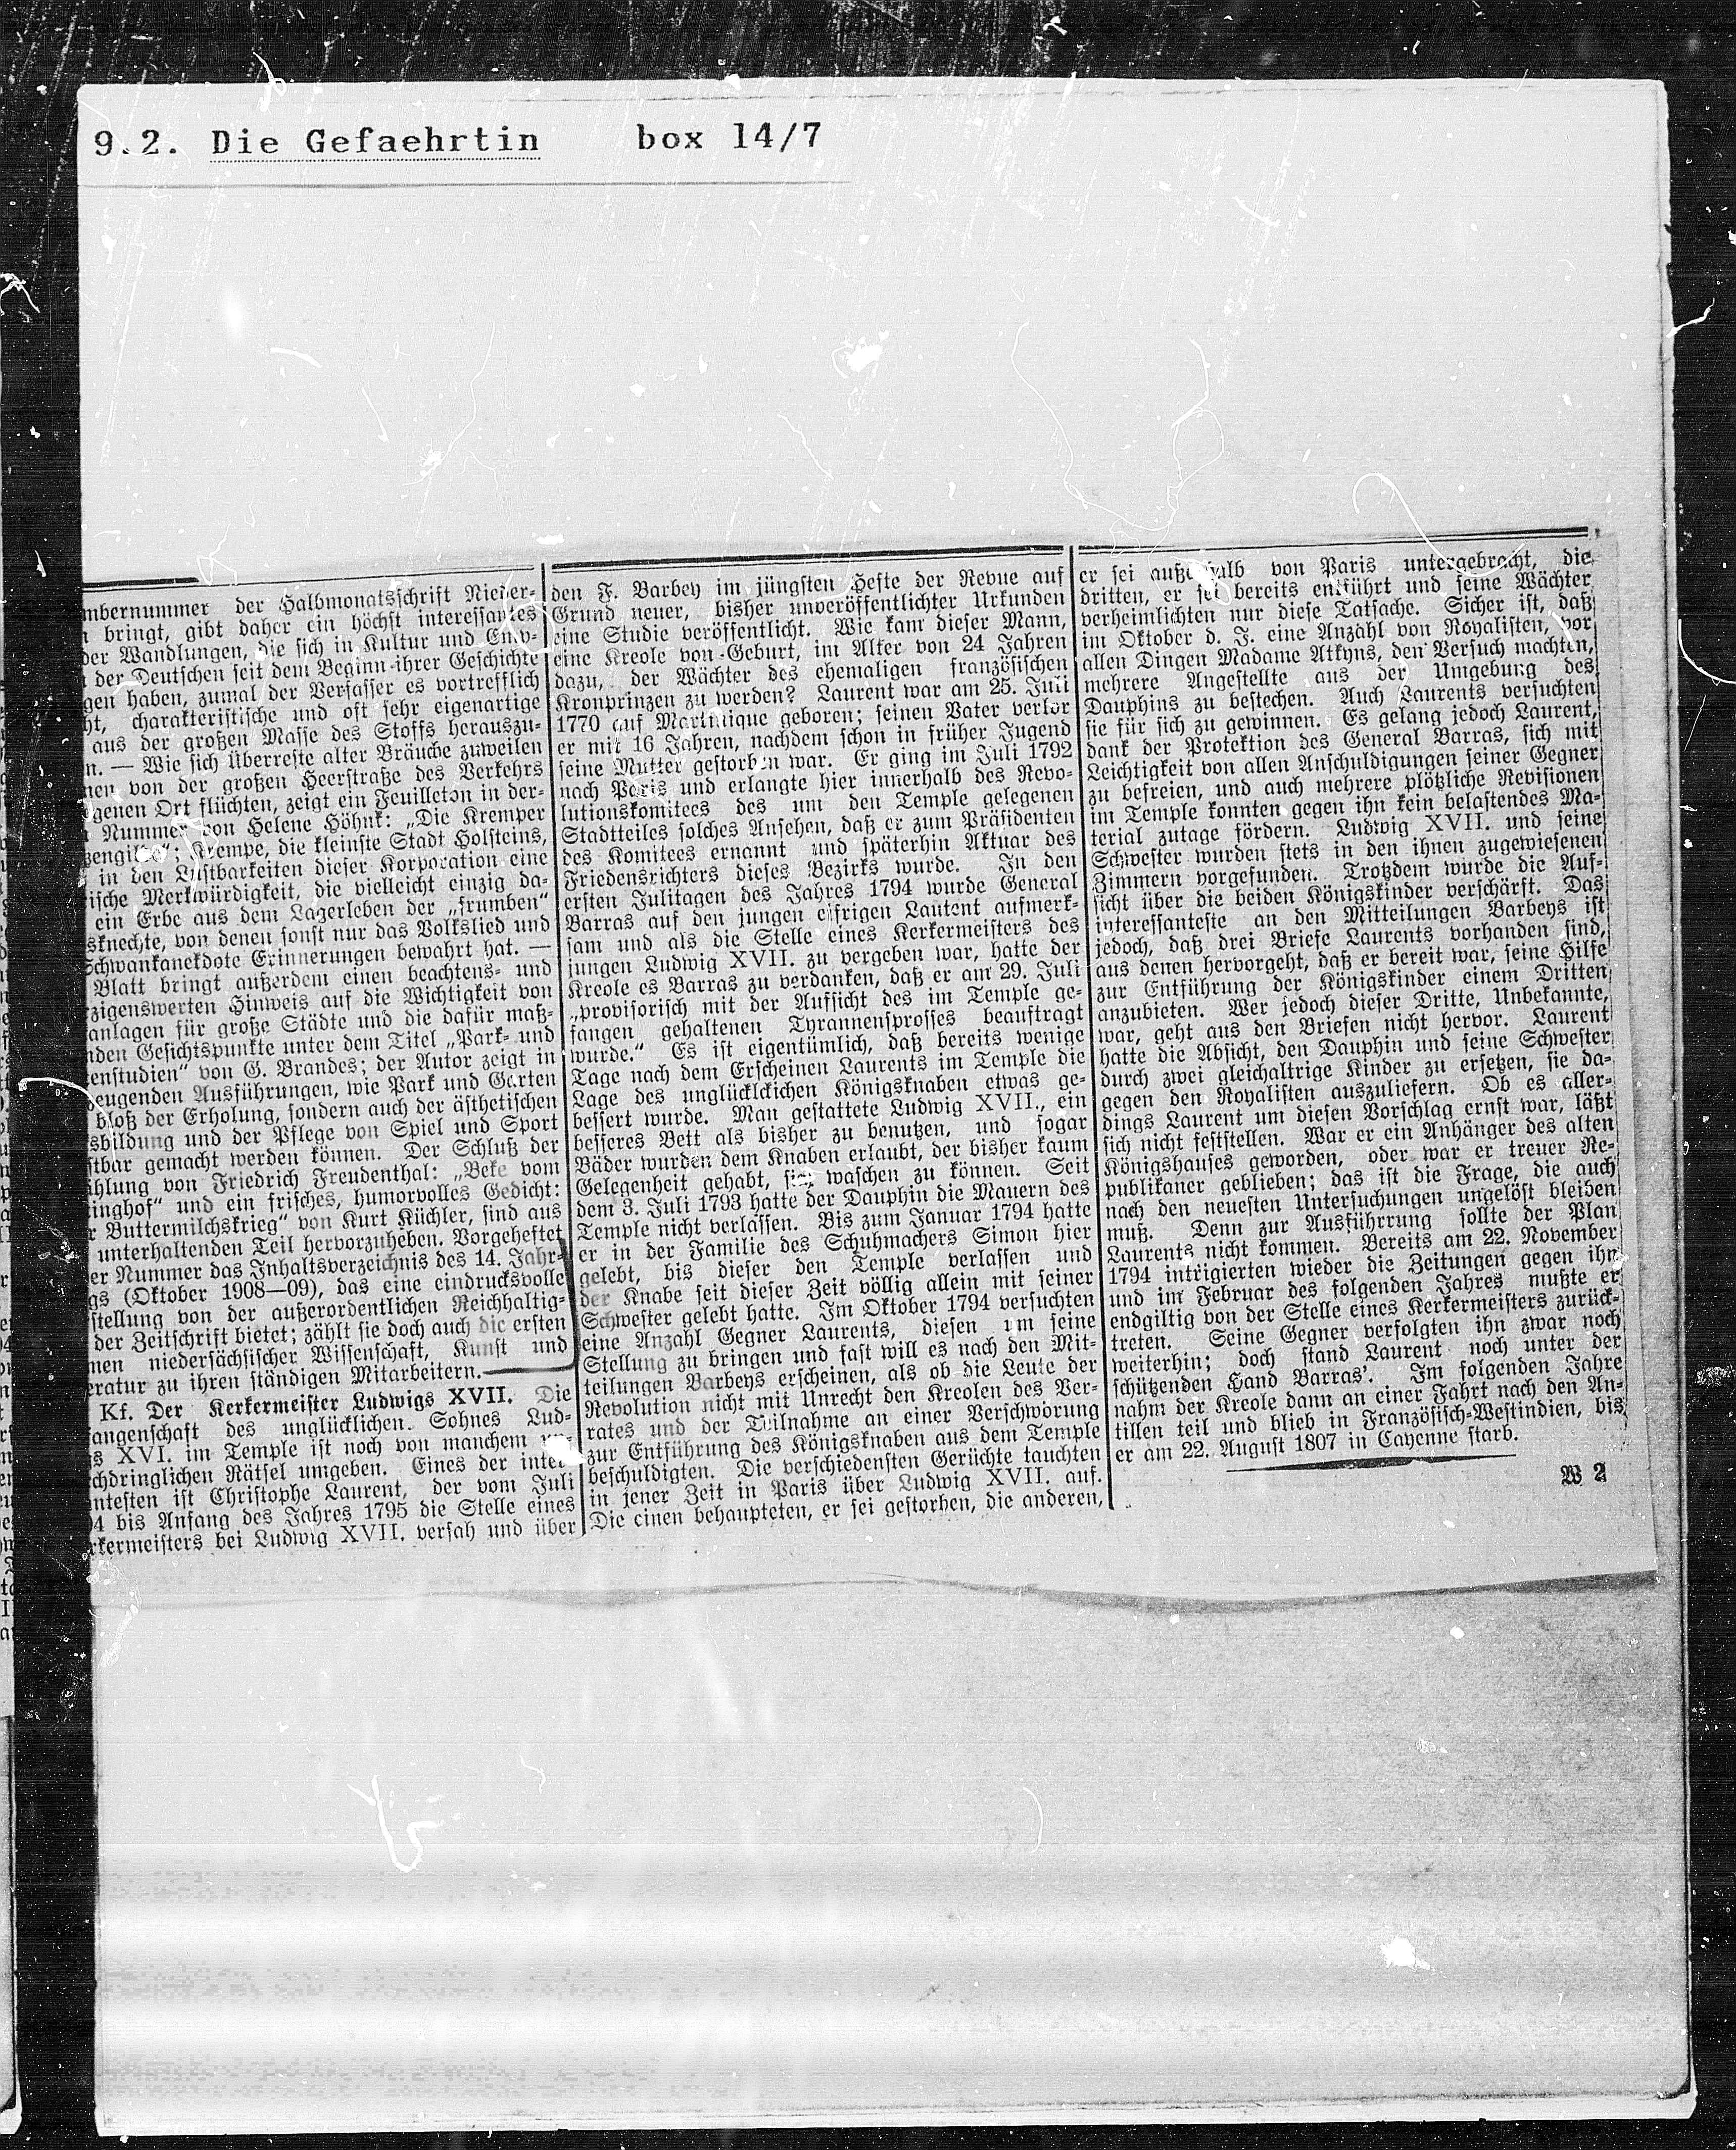 9.2. Die Gefaehrtin box 14/7
mbernummer der Halbmonatsschrift Nieder-
bringt, gibt daher ein höchst interessantes
der Wandlungen, die sich in Kultur und
der Deutschen seit dem Beginn ihrer Geschichte
gen haben, zumal der Verfasser es vortrefflich
ht, charakteristische und oft sehr eigenartige
aus der großen Masse des Stoffs herauszu-
n. — Wie sich überreste alter Bräuche zuweilen
nen von der großen Heerstraße des Verkehrs
genen Ort flüchten, zeigt ein Feuilleton in der-
Nummer von Helene Höhnk: „Die Kremper
Krempe, die kleinste Stadt Holsteins,
in den Lustbarkeiten dieser Korporation eine
ische Merkwürdigkeit, die vielleicht einzig da-
ein Erbe aus dem Lagerleben der „frumben“
sknechte, von denen sonst nur das Volkslied und
Schwankanekdote Erinnerungen bewahrt hat. —
Blatt bringt außerdem einen beachtens- und
zigenswerten Hinweis auf die Wichtigkeit von
anlagen für große Städte und die dafür maß-
nden Gesichtspunkte unter dem Titel „Park- und
enstudien“ von G. Brandes; der Autor zeigt in
eugenden Ausführungen, wie Park und Garten
bloß der Erholung, sondern auch der ästhetischen
sbildung und der Pflege von Spiel und Sport
tbar gemacht werden können. Der Schluß der
ählung von Friedrich Freudenthal: „Beke vom
inghof“ und ein frisches, humorvolles Gedicht:
r Buttermilchskrieg“ von Kurt Küchler, sind aus
unterhaltenden Teil hervorzuheben. Vorgeheftet
er Nummer das Inhaltsverzeichnis des 14. Jahr-
gs (Oktober 1908—09), das eine eindrucksvolle
stellung von der außerordentlichen Reichhaltig-
der Zeitschrift bietet; zählt sie doch auch die ersten
men niedersächsischer Wissenschaft, Kunst und
eratur zu ihren ständigen Mitarbeitern.
Kf. Der Kerkermeister Ludwigs XVII. Die
angenschaft des unglücklichen Sohnes Lud-
gs XVI. im Temple ist noch von manchem un-
chdringlichen Rätsel umgeben. Eines der inter-
ntesten ist Christophe Laurent, der vom Juli
94 bis Anfang des Jahres 1795 die Stelle eines
rkermeisters bei Ludwig XVII. versah und über
den F. Barbey im jüngsten Hefte der Revue auf
Grund neuer, bisher unveröffentlichter Urkunden
eine Studie veröffentlicht. Wie kam dieser Mann,
eine Kreole von Geburt, im Alter von 24 Jahren
dazu, der Wächter des ehemaligen französischen
Kronprinzen zu werden? Laurent war am 25. Juli
1770 auf Martinique geboren; seinen Vater verlor
er mit 16 Jahren, nachdem schon in früher Jugend
seine Mutter gestorben war. Er ging im Juli 1792
nach Paris und erlangte hier innerhalb des Revo-
lutionskomitees des um den Temple gelegenen
Stadtteiles solches Ansehen, daß er zum Präsidenten
des Komitees ernannt und späterhin Aktuar des
Friedensrichters dieses Bezirks wurde. In den
ersten Julitagen des Jahres 1794 wurde General
Barras auf den jungen eifrigen Lautent aufmerk-
sam und als die Stelle eines Kerkermeisters des
jungen Ludwig XVII. zu vergeben war, hatte der
Kreole es Barras zu verdanken, daß er am 29. Juli
„provisorisch mit der Aufsicht des im Temple ge-
fangen gehaltenen Tyrannensprosses beauftragt
wurde.“ Es ist eigentümlich, daß bereits wenige
Tage nach dem Erscheinen Laurents im Temple die
Lage des unglücklckichen Königsknaben etwas ge-
bessert wurde. Man gestattete Ludwig XVII., ein
besseres Bett als bisher zu benutzen, und sogar
Bäder wurden dem Knaben erlaubt, der bisher kaum
Gelegenheit gehabt, sich waschen zu können. Seit
dem 3. Juli 1793 hatte der Dauphin die Mauern des
Temple nicht verlassen. Bis zum Januar 1794 hatte
er in der Familie des Schuhmachers Simon hier
gelebt, bis dieser den Temple verlassen und
der Knabe seit dieser Zeit völlig allein mit seiner
Schwester gelebt hatte. Im Oktober 1794 versuchten
eine Anzahl Gegner Laurents, diesen um seine
Stellung zu bringen und fast will es nach den Mit-
teilungen Barbeys erscheinen, als ob die Leute der
Revolution nicht mit Unrecht den Kreolen des Ver-
rates und der Teilnahme an einer Verschwörung
zur Entführung des Königsknaben aus dem Temple
beschuldigten. Die verschiedensten Gerüchte tauchten
in jener Zeit in Paris über Ludwig XVII. auf.
Die einen behaupteten, er sei gestorben, die anderen,
er sei außerhalb von Paris untergebracht, die
dritten, er sei bereits entführt und seine Wächter
verheimlichten nur diese Tatsache. Sicher ist, daß
im Oktober d. J. eine Anzahl von Royalisten, vor
allen Dingen Madame Atkyns, den Versuch machten,
mehrere Angestellte aus der Umgebung des
Dauphins zu bestechen. Auch Laurents versuchten
sie für sich zu gewinnen. Es gelang jedoch Laurent,
dank der Protektion des General Barras, sich mit
Leichtigkeit von allen Anschuldigungen seiner Gegner
zu befreien, und auch mehrere plötzliche Revisionen
im Temple konnten gegen ihn kein belastendes Ma-
terial zutage fördern. Ludwig XVII. und seine
Schwester wurden stets in den ihnen zugewiesenen
Zimmern vorgefunden. Trotzdem wurde die Auf-
sicht über die beiden Königskinder verschärft. Das
interessanteste an den Mitteilungen Barbeys ist
jedoch, daß drei Briefe Laurents vorhanden sind,
aus denen hervorgeht, daß er bereit war, seine Hilfe
zur Entführung der Königskinder einem Dritten
anzubieten. Wer jedoch dieser Dritte, Unbekannte,
war, geht aus den Briefen nicht hervor. Laurent
hatte die Absicht, den Dauphin und seine Schwester
durch zwei gleichaltrige Kinder zu ersetzen, sie da-
gegen den Royalisten auszuliefern. Ob es aller-
dings Laurent um diesen Vorschlag ernst war, läßt
sich nicht feststellen. War er ein Anhänger des alten
Königshauses geworden, oder war er treuer Re-
publikaner geblieben; das ist die Frage, die auch
nach den neuesten Untersuchungen ungelöst bleiben
muß. Denn zur Ausführrung sollte der Plan
Laurents nicht kommen. Bereits am 22. November
1794 intrigierten wieder die Zeitungen gegen ihn
und im Februar des folgenden Jahres mußte er
endgiltig von der Stelle eines Kerkermeisters zurück-
treten. Seine Gegner verfolgten ihn zwar noch
weiterhin; doch stand Laurent noch unter der
schützenden Hand Barras'. Im folgenden Jahre
nahm der Kreole dann an einer Fahrt nach den An-
tillen teil und blieb in Französisch-Westindien, bis
er am 22. August 1807 in Cayenne starb.
W 2